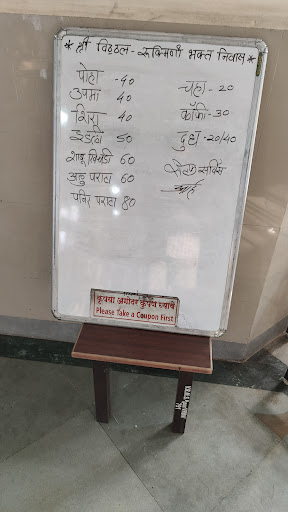 * श्री विठ्ठल - रूक्मिणी भक्त निवास *
पोहा - 40
उपमा 40
शिरा 40
इडली 50
शाबु खिचडी 60
आलु पराठा 60
पनिर पराठा 80
चहा - 20
कॉफी - 30
दुध - 20/40
सेल्फ सर्विस
आहे
कृपया अगोदर कूपन घ्यावे
Please Take a Coupon First